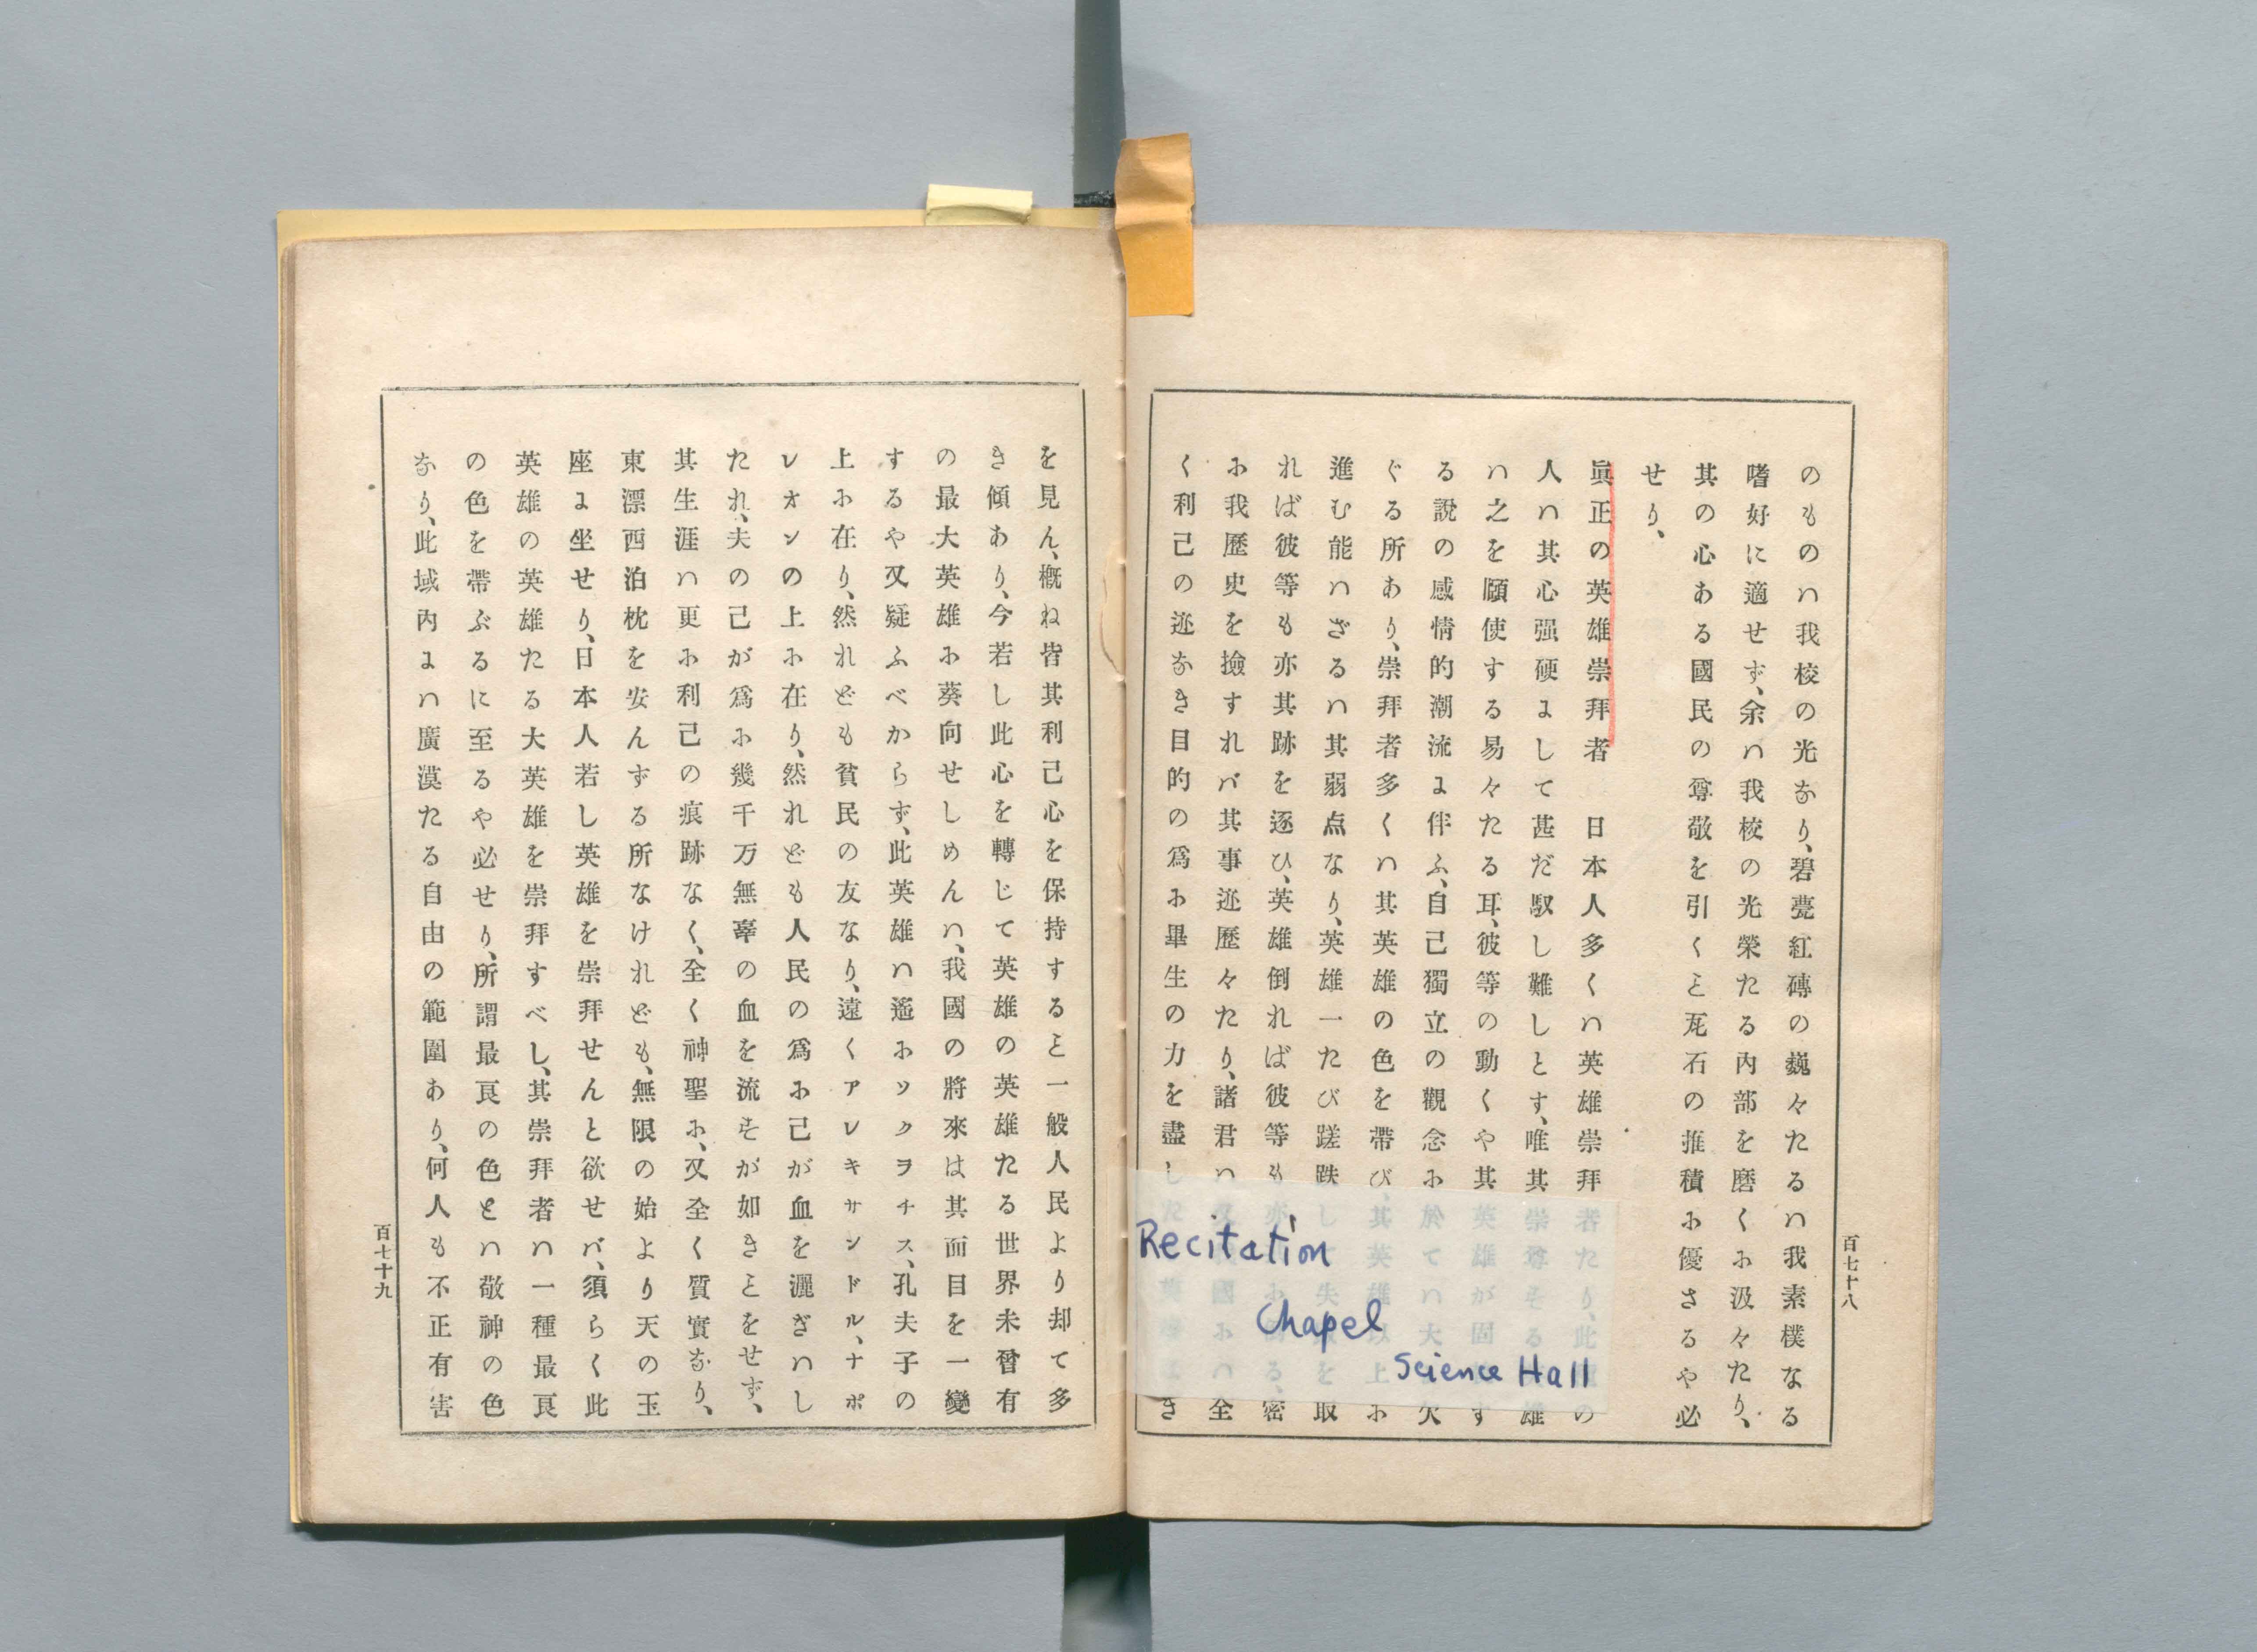 のものハ我校の光なり、碧甍紅磚の巍々たるハ我素樸なる
嗜好に適せず、余ハ我校の光榮たる内部を磨くに汲々たり、
其の心ある國民の尊敬を引くこと瓦石の推積に優さるや必
せり、
眞正の英雄崇拜者 日本人多くハ英雄崇拜者たり、此の
人ハ其心强硬にして甚だ馭し難しとす、唯其崇尊する雄
ハ之を頤使する易々たる耳、彼等の動くや其英雄が固す
る說の感情的潮流に伴ふ、自己獨立の觀念に於てハ大欠
ぐる所あり、崇拜者多くハ其英雄の色を帶び、其英雄以上に
進む能ハざるハ其弱点なり、英雄一たび蹉跌し失を取
れば彼等も亦其跡を逐ひ、英雄倒れば彼等も亦に る、密
に我歷史を撿すれバ其事迹歷々たり、諸君ハ 國にハ全
く利己の迹なき目的の爲に畢生の力を盡し き
百七十八
Recitation
Chapel
Science Hall
を見ん、概ね皆其利己心を保持すること一般人民より却て多
き傾あり、今若し此心を轉じて英雄の英雄たる世界未曾有
の最大英雄に葵向せしめんハ、我國の將來は其面目を一變
するや又疑ふべからず、此英雄ハ遙にソクヲチス、孔夫子の
上に在り、然れども貧民の友なり、遠くアレキサンドル、ナポ
レオンの上に在り、然れども人民の爲に己が血を灑ぎハし
たれ、夫の己が爲に幾千万無辜の血を流すが如きことをせず、
其生涯ハ更に利己の痕跡なく、全く神聖に、又全く質實なり、
東漂西泊枕を安んずる所なけれども、無限の始より天の玉
座に坐せり、日本人若し英雄を崇拜せんと欲せバ、須らく此
英雄の英雄たる大英雄を崇拜すべし、其崇拜者ハ一種最良
の色を帶ぶるに至るや必せり、所謂最良の色とハ敬神の色
なり、此域内にハ廣漠たる自由の範圍あり、何人も不正有害
百七十九